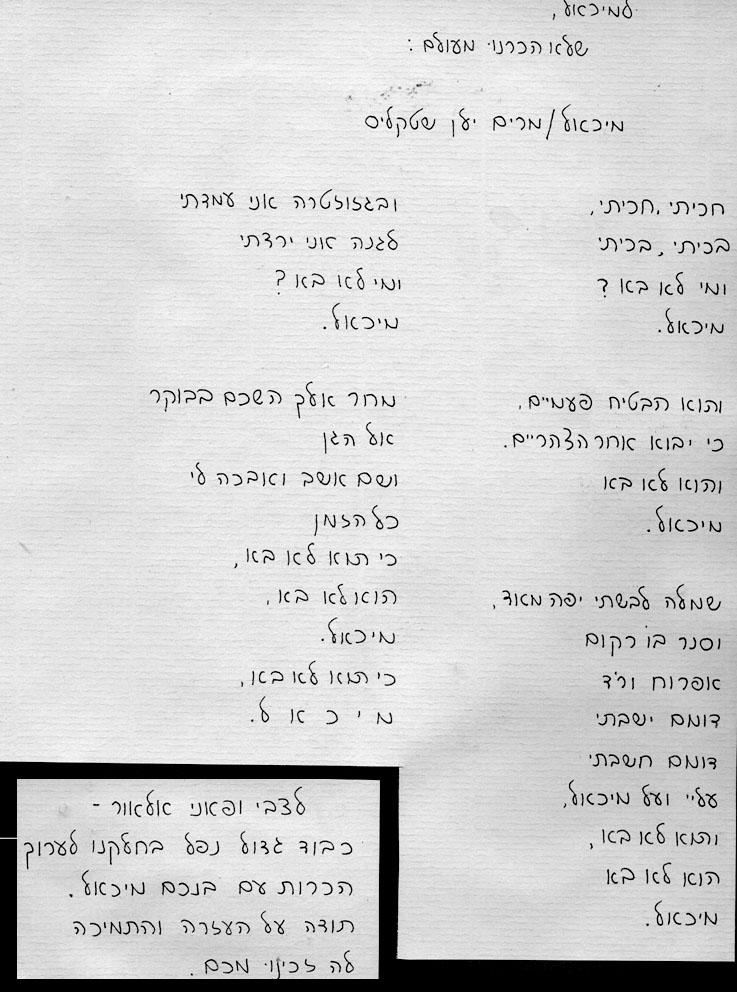 למיכאל,
שלא הכרנו מעולם:
מיכאל/מרים ילן שטקליס
חכיתי, חכיתי,
בכיתי, בכיתי
ומי לא בא?
מיכאל.
והוא הבטיח פעמיים,
כי יבוא אחר הצהריים.
והוא לא בא
מיכאל.
שמלה לבשתי יפה מאוד,
וסנר בו רקום
אפרוח וורד
דומם ישבתי
דומם חשבתי
עליי ועל מיכאל,
והוא לא בא,
הוא לא בא
מיכאל.
ובגזוזטרה אני עמדתי
לגנה אני ירדתי
ומי לא בא?
מיכאל.
מחר אלך השכם בבוקר
אל הגן
ושם אשב ואבכה לי
כל הזמן
כי הוא לא בא,
הוא לא בא,
מיכאל.
כי הוא לא בא,
מ י כ א ל.
לצבי ופאני אלאור -
כבוד גדול נפל בחלקנו לערוך
הכרות עם בנכם מיכאל.
תודה על העזרה והתמיכה
לה זכינו מכם.